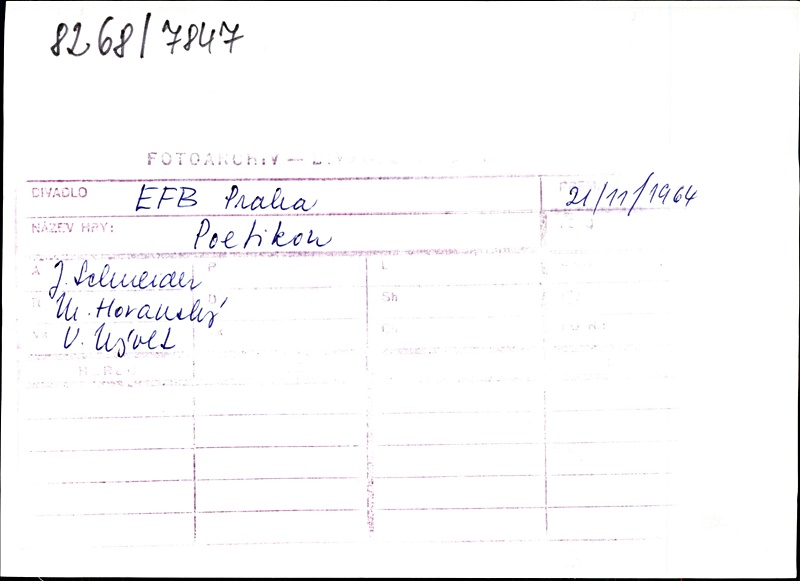 8268/7847
FOTOARCHIV —
DIVADLO EFB Praha 21/11/1964
NÁZEV HRY: Poetikon
A J. Schneider P L
R M. Horanský Sh
V. Nývlt